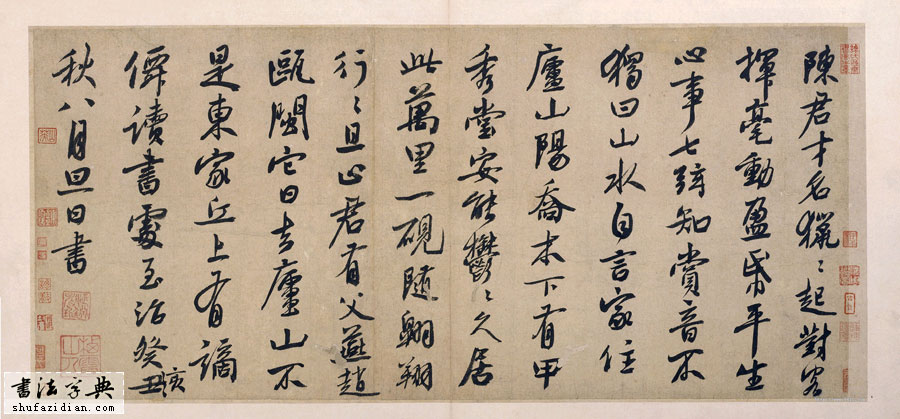 陳君才名獵〻起對客
揮毫動盈帋平生
心事七絃知賞音不
獨曰山水自言家住
廬山陽喬木下有甲
秀堂安能鬱〻久居
此萬里一硯隨翱翔
行〻且止君有父燕趙
甌閩它日去廬山不
是東家丘上有謫
僊讀書處至治癸亥
秋八月旦日書
書法字典
shufazidian.com